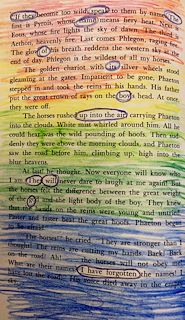 If they become too wild, speak to them by name. The
first is Pyrois, whose name means fiery heat. Next
Eous, whose fire lights the sky of dawn. The third is
Aethon, heavenly fire. Last comes Phlegon, raging fire.
The glow of his breath reddens the western sky at the
end of day. Phlegon is the wildest of all my horses."
The golden chariot with its silver wheels stood
gleaming at the gates. Impatient to be gone, Phaeton
stepped in and took the reins in his hands. His father
put the great crown of rays on the boy's head. At once,
they were off.
The horses rushed up into the air carrying Phaeton
into the clouds. White mist whirled around him. All he
could hear was the wild pounding of hoofs. Then sud-
denly they were above the morning clouds, and Phaeton
saw the road before him, climbing up, high into the
blue heavens.
At last! he thought. Now everyone will know who
I am. They will never dare to laugh at me again! But
the horses felt the difference between the great weight
of the god and the light body of the boy. They knew
that the hands on the reins were young and
faster and faster beat the great hoofs. Phaeton began
to be afraid!
horses! he cried. They are stronger than I
thought! The reins are cutting my hands. Back! Back
on the road! Ah! the horses will not obey
What are their names? I have forgotten the names! I
have lost the died away in the